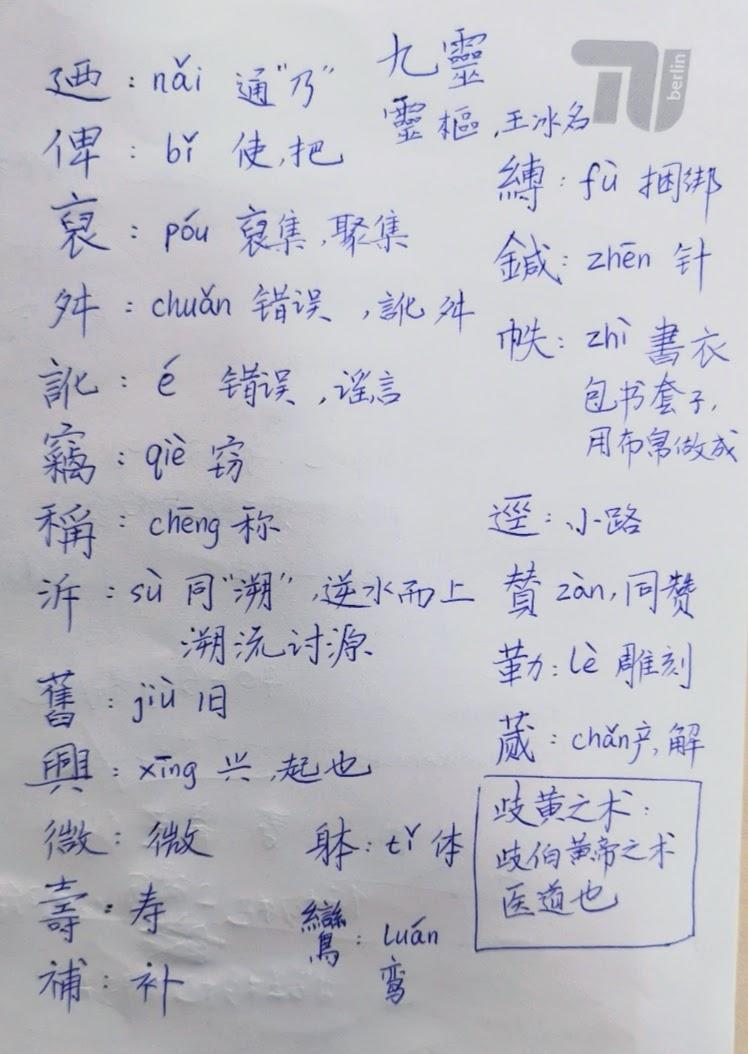 廼：nǎi 通“乃”
俾：bǐ 使，把
裒：póu 裒集，聚集
舛：chuǎn 错误，訛舛
訛：é 错误，谣言
竊：qiè 窃
稱：chēng 称
泝：sù 同“溯”，逆水而上
溯流讨源
舊：jiù 旧
興：xīng 兴，起也
微：微
壽：寿
補：补
躰：tǐ 体
鸞：luán
鸾
九靈
靈樞，王冰名
berlin
縛：fù 捆绑
鍼：zhēn 针
帙：zhì 書衣
包书套子，
用布帛做成
逕：小路
賛 zàn，同赞
勒：lè 雕刻
蕆：chǎn产，解
歧黄之术：
歧伯黄帝之术
医道也